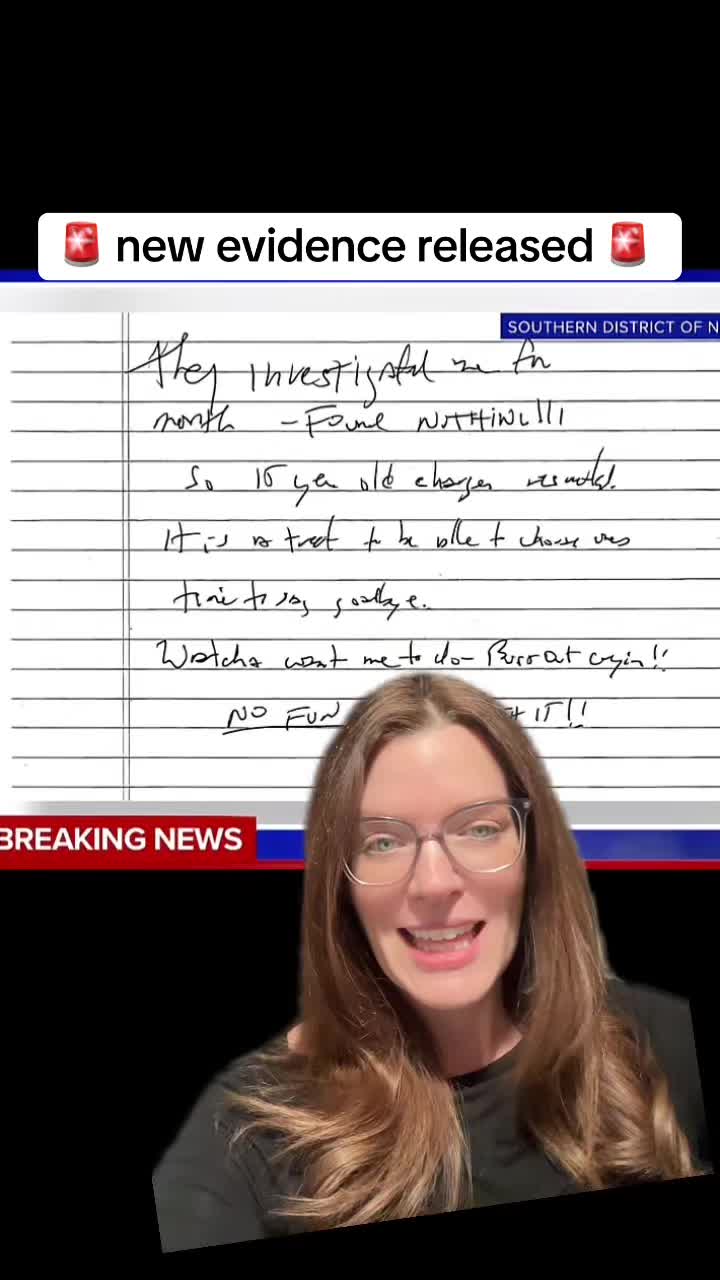 🚨 new evidence released 🚨
SOUTHERN DISTRICT OF N
they investigated me for
month - Found NOTHING!!!
So 15 year old charges resulted.
It is a treat to be able to choose ones
time to say goodbye.
Watcha want me to do - Burst out cryin!!
NO FUN IT!!
BREAKING NEWS